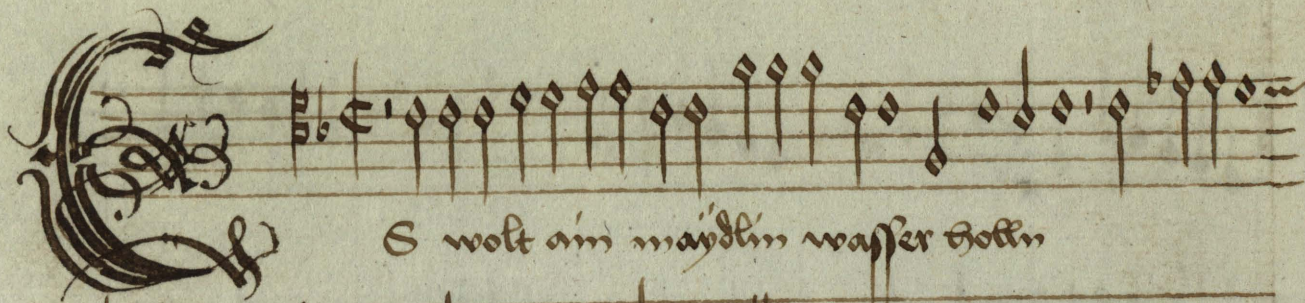 ES wolt ain maÿdlin wasser holln